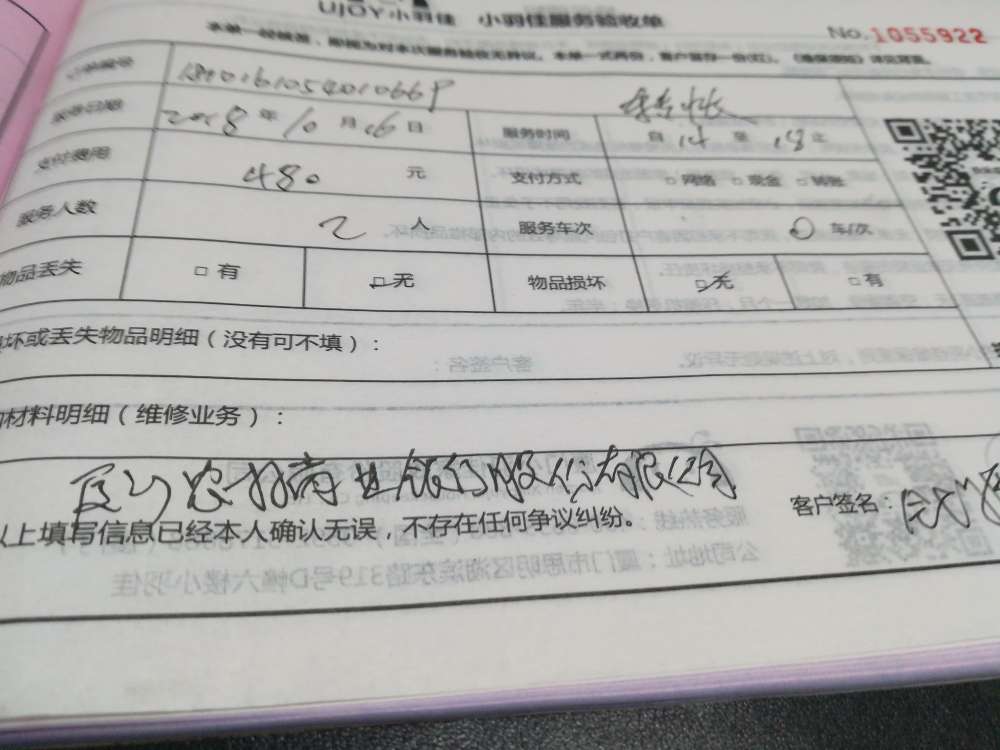 UJOY小羽佳 小羽佳服务验收单
No.1055922
本单一经核签，即视为对本次服务验收无异议。本单一式两份，客户留存一份(红)。
订单编号
服务日期 2018 年 10 月 16 日 服务时间 自 14 至 18 止
支付费用 480 元 支付方式 □ 网络 □ 现金 □ 转账
服务人数 2 人 服务车次 0 车/次
物品丢失 □ 有 □ 无 物品损坏 □ 无 □ 有
坏或丢失物品明细（没有可不填）：
材料明细（维修业务）：
厦门农村商业银行股份有限公司
以上填写信息已经本人确认无误，不存在任何争议纠纷。 客户签名：